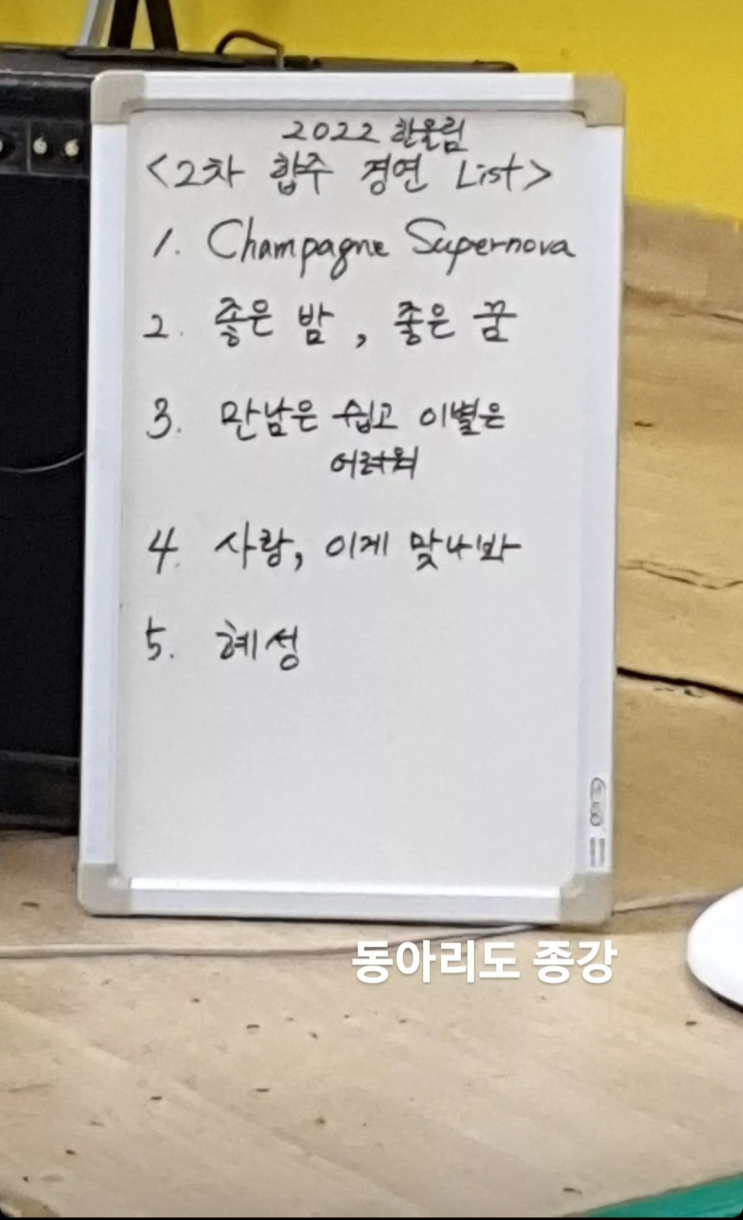 2022 한울림
<2차 합주 경연 List>
1. Champagne Supernova
2. 좋은 밤, 좋은 꿈
3. 만남은 쉽고 이별은
어려워
4. 사랑, 이게 맞나봐
5. 혜성
동아리도 종강